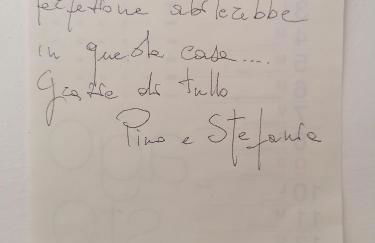 perfezione abiterebbe
in questa casa....
Grazie di tutto
Pino e Stefania